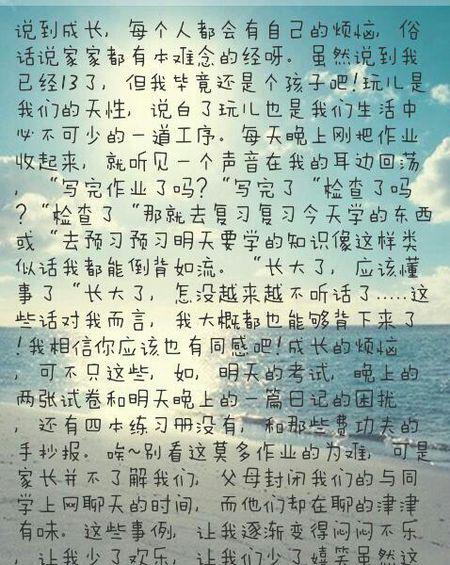 说到成长，每个人都会有自己的烦恼，俗
话说家家都有本难念的经呀。虽然说到我
已经13了，但我毕竟还是个孩子吧！玩儿是
我们的天性，说白了玩儿也是我们生活中
必不可少的一道工序。每天晚上刚把作业
收起来，就听见一个声音在我的耳边回荡
，“写完作业了吗？“写完了“检查了吗
？“检查了“那就去复习复习今天学的东西
或“去预习预习明天要学的知识像这样类
似话我都能倒背如流。“长大了，应该懂
事了“长大了，怎没越来越不听话了.....这
些话对我而言，我大概都也能够背下来了
！我相信你应该也有同感吧！成长的烦恼
，可不只这些，如，明天的考试，晚上的
两张试卷和明天晚上的一篇日记的困扰
，还有四本练习册没有，和那些费功夫的
手抄报。唉~别看这莫多作业的为难，可是
家长并不了解我们，父母封闭我们的与同
学上网聊天的时间，而他们却在聊的津津
有味。这些事例，让我逐渐变得闷闷不乐
，让我少了欢乐，让我们少了嬉笑虽然这